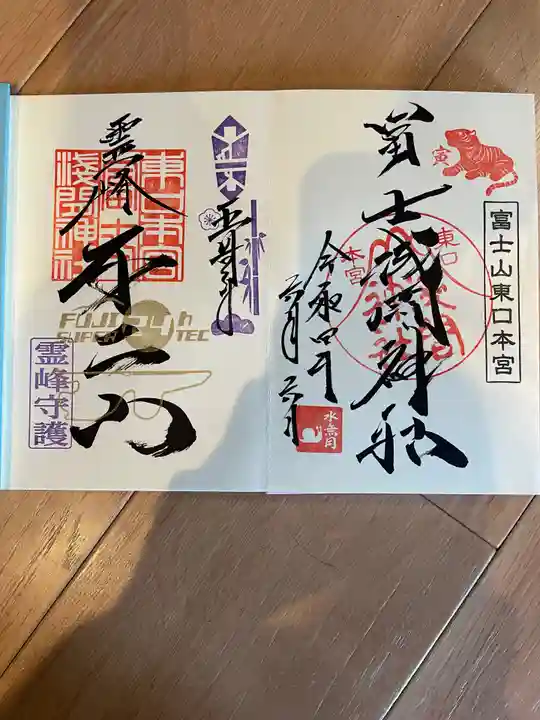 寅
富士山東口本宮
冨士浅間神社
東口
本宮
令和四年
六月六日
水無月
正
東口本宮
冨士
浅間神社
霊峰
不二山
FUJI 24h
SUPER TEC
霊峰守護